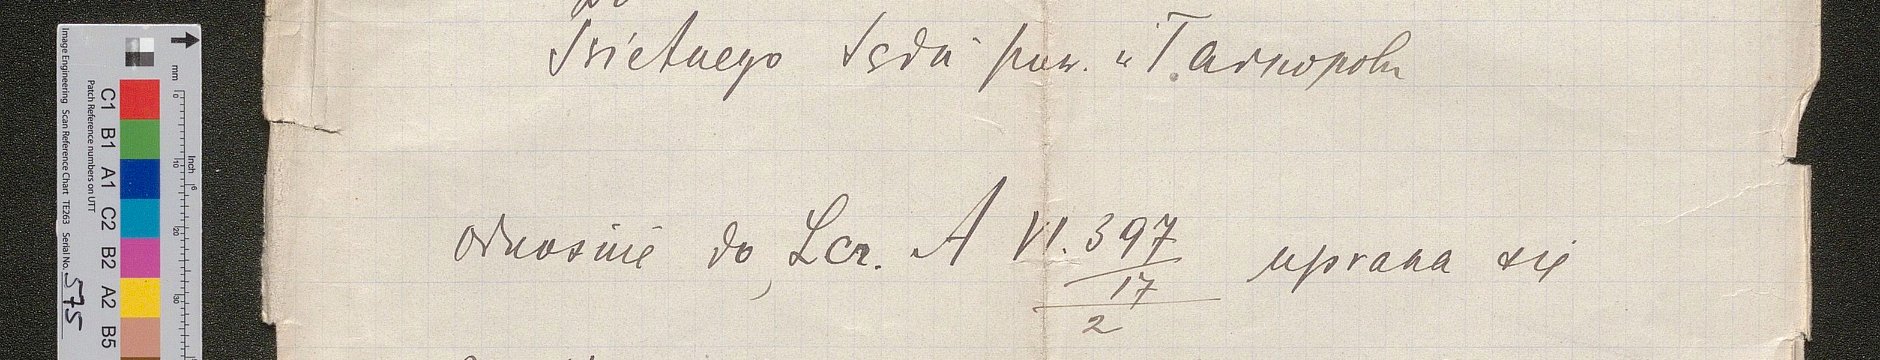 Do
Świetnego Sądu pow. w Tarnopolu
odnośnie do Lcz. A VI. 397 uprasza się
17
2
Image Engineering Scan Reference Chart TE263 Serial No. 575
Patch Reference numbers on UTT
C1 B1 A1 C2 B2 A2 B5
mm 0 10 20 30
Inch